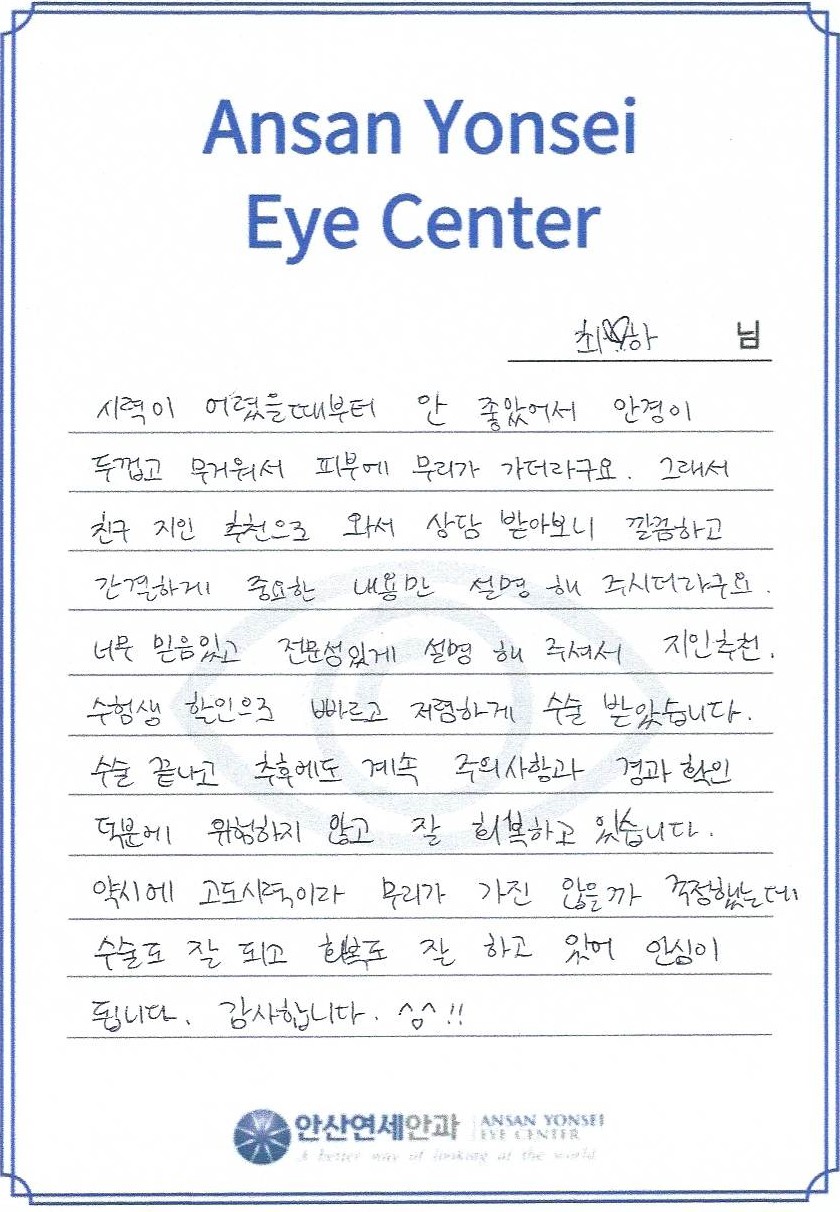 Ansan Yonsei
Eye Center
최♡하 님
시력이 어렸을때부터 안 좋았어서 안경이
두껍고 무거워서 피부에 무리가 가더라구요. 그래서
친구 지인 추천으로 와서 상담 받아보니 깔끔하고
간결하게 중요한 내용만 설명 해 주시더라구요.
너무 믿음있고 전문성있게 설명 해 주셔서 지인추천.
수험생 할인으로 빠르고 저렴하게 수술 받았습니다.
수술 끝나고 추후에도 계속 주의사항과 경과 확인
덕분에 위험하지 않고 잘 회복하고 있습니다.
약시에 고도시력이라 무리가 가진 않을까 걱정했는데
수술도 잘 되고 회복도 잘 하고 있어 안심이
됩니다. 감사합니다. ^^!!
안산연세안과 ANSAN YONSEI
EYE CENTER
A better way of looking at the world